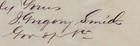 y Yours
J Gregory Smith
Gov of Vt